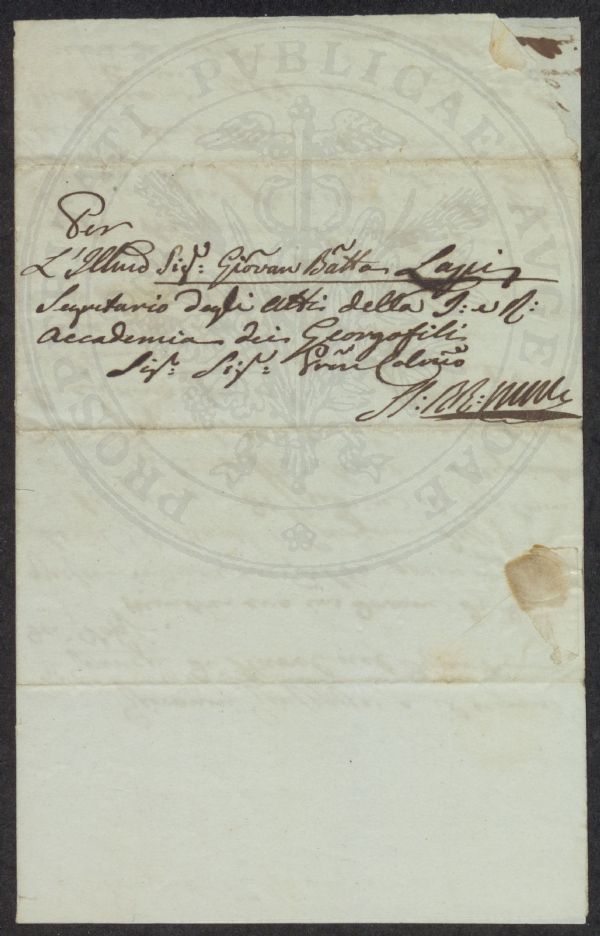 PROSPERITATI PVBLICAE AVGENDAE
Per
L'Illmo Sigr: Giovan Batta Lapi
Segretario degli Atti della I: e R:
Accademia dei Georgofili
Sigr: Sigr: Pron Colmo